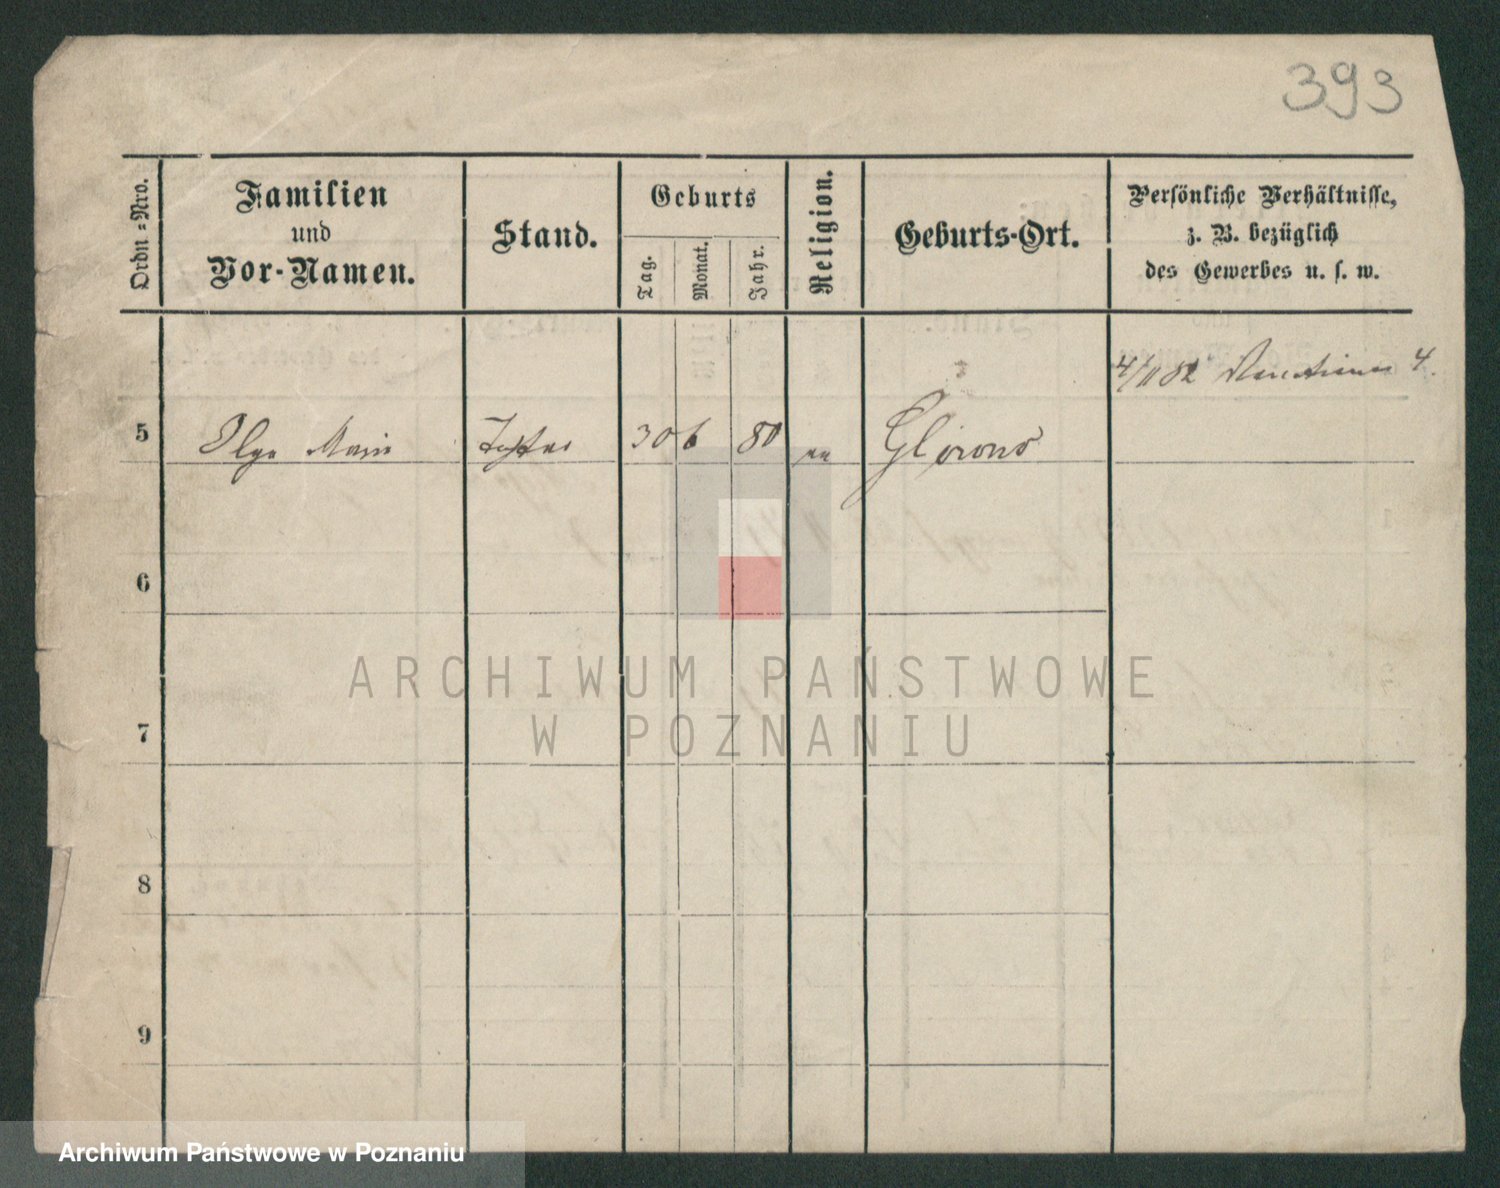 393
Ordn=Nro.
Familien
und
Vor-Namen.
Stand.
Geburts
Tag.
Monat.
Jahr.
Religion.
Geburts-Ort.
Persönliche Verhältnisse,
z. B. bezüglich
des Gewerbes u. s. w.
4/11 82 4.
5 Olga Marie Tochter 30 6 80
6
7
8
9
ARCHIWUM PAŃSTWOWE
W POZNANIU
Archiwum Państwowe w Poznaniu